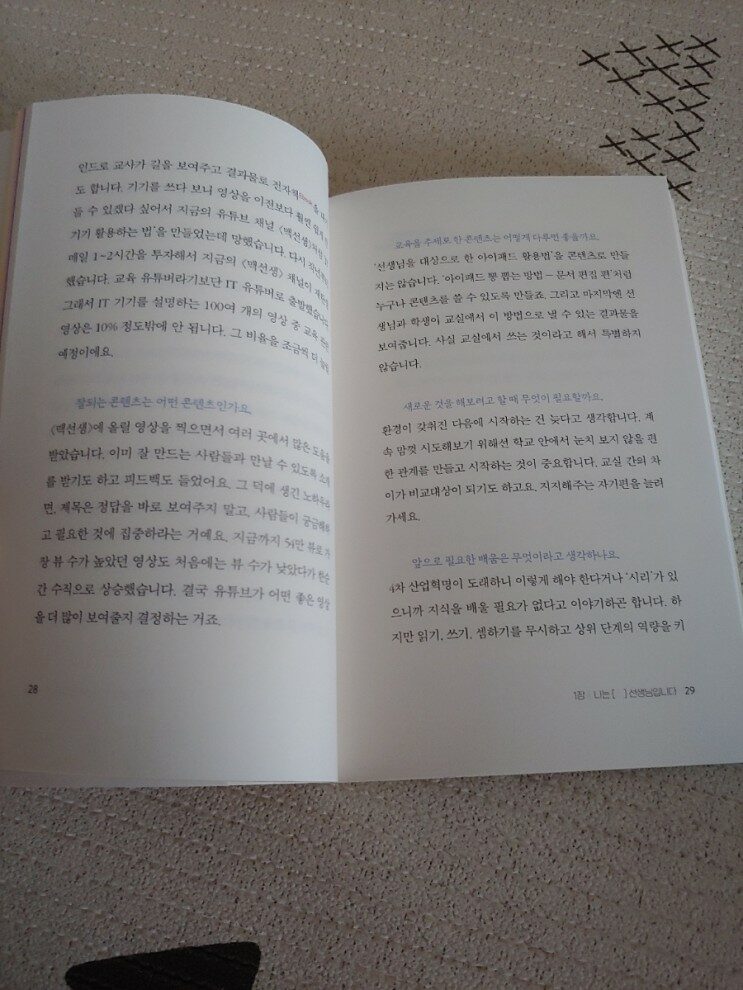 인드로 교사가 길을 보여주고 결과물로 전자책ebook을
도 합니다. 기기를 쓰다 보니 영상을 이전보다 훨씬 쉽게
들 수 있겠다 싶어서 지금의 유튜브 채널 〈맥선생〉처럼
기기 활용하는 법'을 만들었는데 망했습니다. 다시
매일 1~2시간을 투자해서 지금의 〈맥선생〉 채널이
했습니다. 교육 유튜버라기보단 IT 유튜버로 출발했습니다.
그래서 IT 기기를 설명하는 100여 개의 영상 중 교육
영상은 10% 정도밖에 안 됩니다. 그 비율을 조금씩 더
예정이에요.
잘되는 콘텐츠는 어떤 콘텐츠인가요.
〈맥선생〉에 올릴 영상을 찍으면서 여러 곳에서 많은 도움을
받았습니다. 이미 잘 만드는 사람들과 만날 수 있도록
를 받기도 하고 피드백도 들었어요. 그 덕에 생긴
면, 제목은 정답을 바로 보여주지 말고, 사람들이 궁금해하
고 필요한 것에 집중하라는 거예요. 지금까지 54만 뷰로 가
장 뷰 수가 높았던 영상도 처음에는 뷰 수가 낮았다가 한순
간 수직으로 상승했습니다. 결국 유튜브가 어떤 좋은 영상
을 더 많이 보여줄지 결정하는 거죠.
28
교육을 주제로 한 콘텐츠는 어떻게 다루면 좋을까요.
'선생님을 대상으로 한 아이패드 활용법'을 콘텐츠로 만들
지는 않습니다. '아이패드 뽕 뽑는 방법 – 문서 편집 편'처럼
누구나 콘텐츠를 쓸 수 있도록 만들죠. 그리고 마지막엔 선
생님과 학생이 교실에서 이 방법으로 낼 수 있는 결과물을
보여줍니다. 사실 교실에서 쓰는 것이라고 해서 특별하지
않습니다.
새로운 것을 해보려고 할 때 무엇이 필요할까요.
환경이 갖춰진 다음에 시작하는 건 늦다고 생각합니다. 계
속 맘껏 시도해보기 위해선 학교 안에서 눈치 보지 않을 편
한 관계를 만들고 시작하는 것이 중요합니다. 교실 간의 차
이가 비교대상이 되기도 하고요. 지지해주는 자기편을 늘려
가세요.
앞으로 필요한 배움은 무엇이라고 생각하나요.
4차 산업혁명이 도래하니 이렇게 해야 한다거나 '시리'가 있
으니까 지식을 배울 필요가 없다고 이야기하곤 합니다. 하
지만 읽기, 쓰기, 셈하기를 무시하고 상위 단계의 역량을 키
1장 나는 [ ] 선생님입니다 29